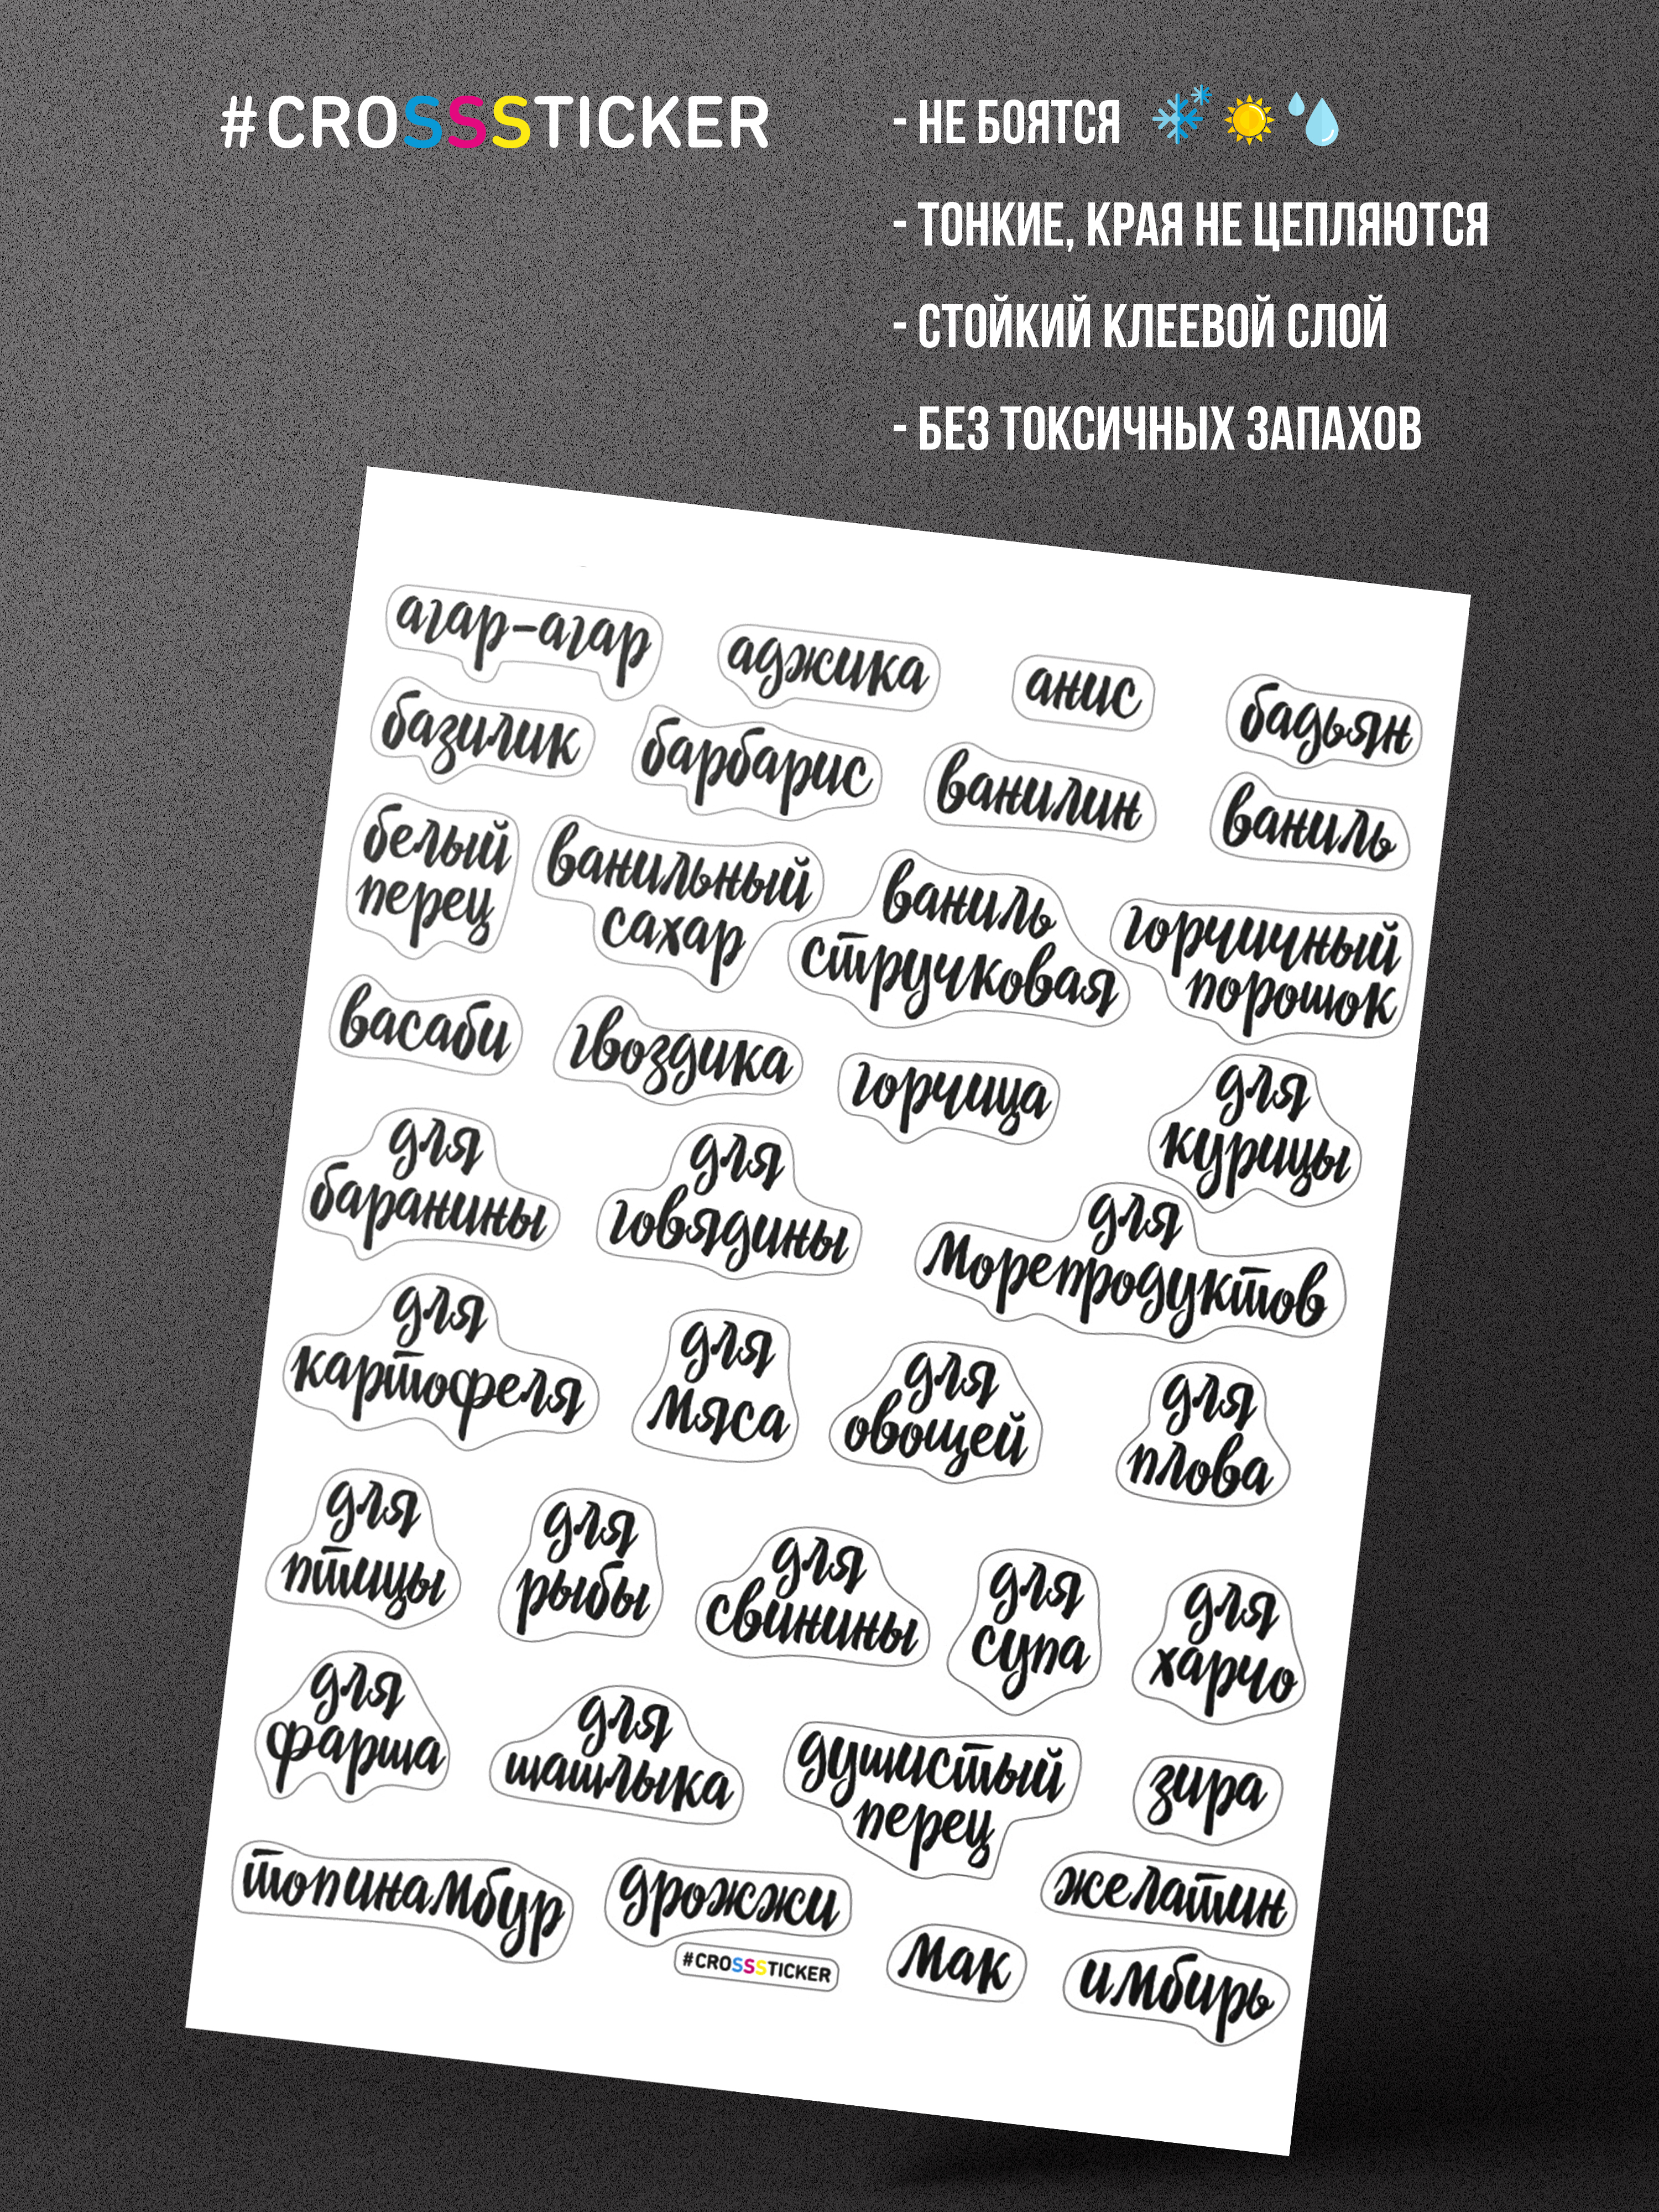 #CROSSSTICKER
- НЕ БОЯТСЯ
- ТОНКИЕ, КРАЯ НЕ ЦЕПЛЯЮТСЯ
- СТОЙКИЙ КЛЕЕВОЙ СЛОЙ
- БЕЗ ТОКСИЧНЫХ ЗАПАХОВ
агар-агар
аджика
анис
бадьян
базилик
барбарис
ванилин
ваниль
белый
перец
ванильный
сахар
ваниль
стручковая
горчичный
порошок
васаби
гвоздика
горчица
для
курицы
для
баранины
для
говядины
для
морепродуктов
для
картофеля
для
мяса
для
овощей
для
плова
для
птицы
для
рыбы
для
свинины
для
супа
для
харчо
для
фарша
для
шашлыка
душистый
перец
зира
топинамбур
дрожжи
желатин
#CROSSSTICKER
мак
имбирь